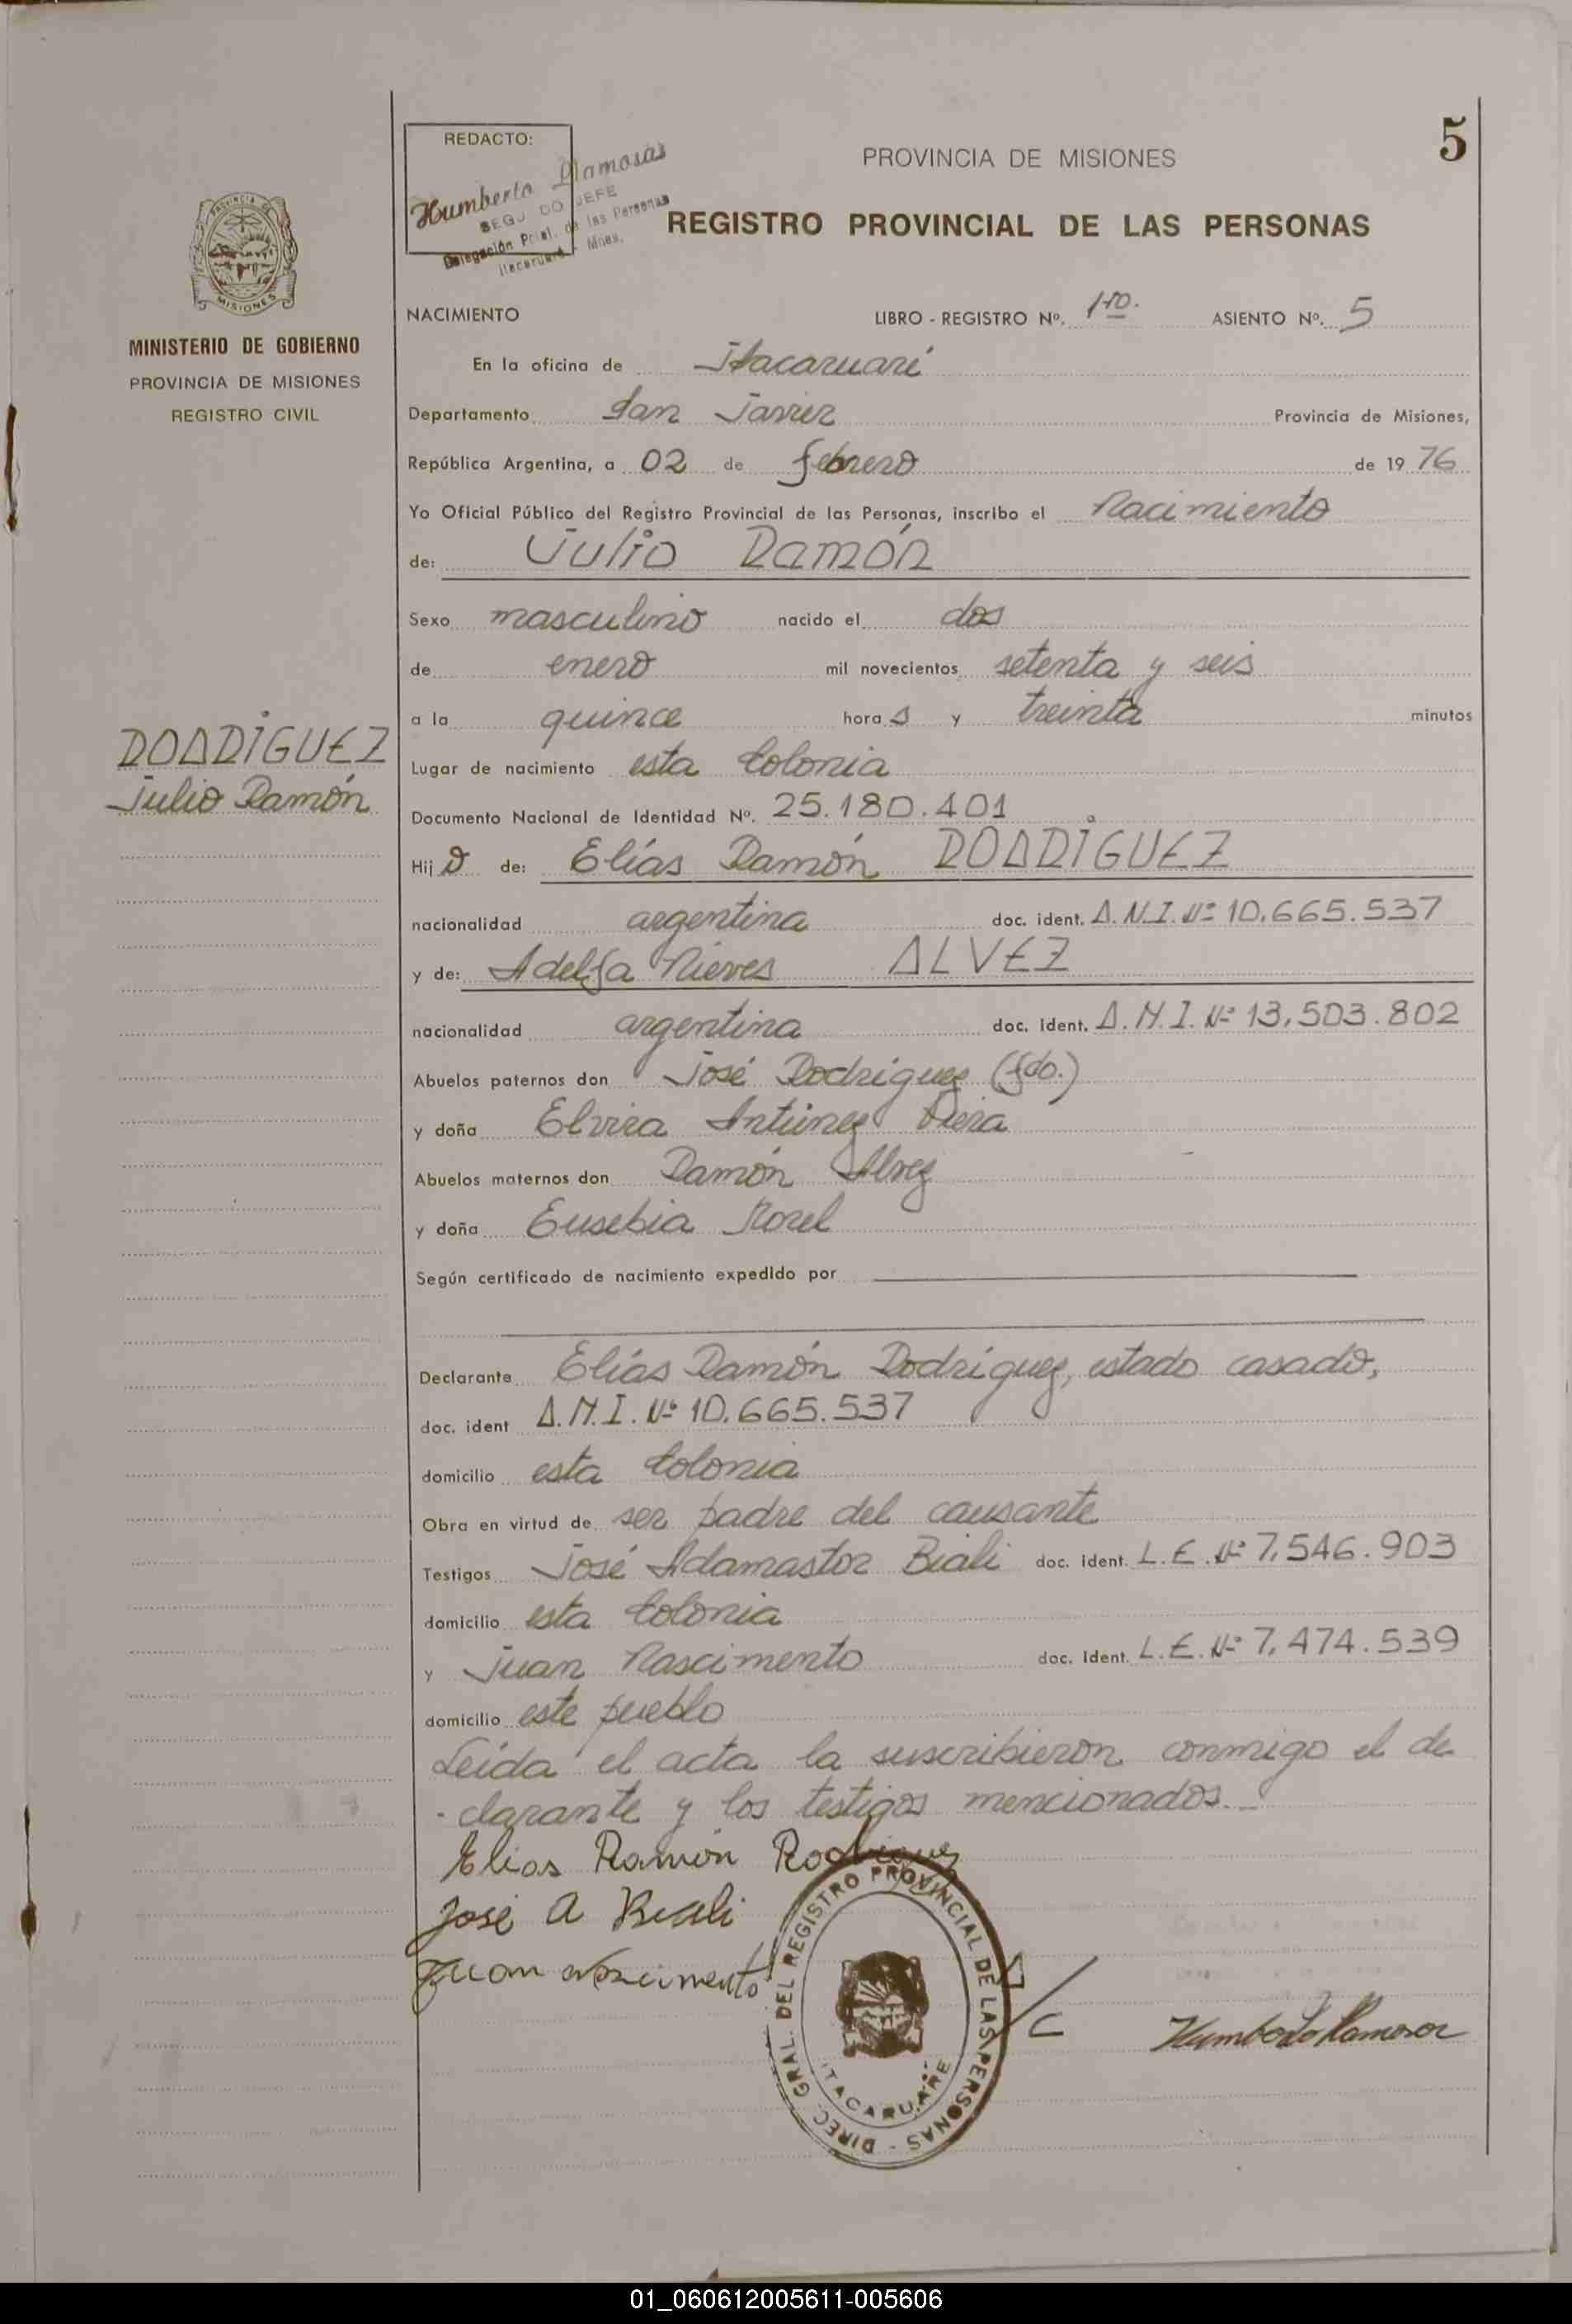 5
REDACTO:
Humberto Llamosas
SEGUNDO JEFE
Delegación Pcial. de las Personas
Itacaruaré - Mnes.
PROVINCIA DE MISIONES
REGISTRO PROVINCIAL DE LAS PERSONAS
PROVINCIA DE
MISIONES
MINISTERIO DE GOBIERNO
PROVINCIA DE MISIONES
REGISTRO CIVIL
RODRIGUEZ
Julio Ramón
NACIMIENTO LIBRO - REGISTRO Nº. 1ro. ASIENTO Nº. 5
En la oficina de Itacaruaré
Departamento San Javier Provincia de Misiones,
República Argentina, a 02 de febrero de 1976
Yo Oficial Público del Registro Provincial de las Personas, inscribo el Nacimiento
de: Julio Ramón
Sexo masculino nacido el dos
de enero mil novecientos setenta y seis
a la quince horas y treinta minutos
Lugar de nacimiento esta Colonia
Documento Nacional de Identidad Nº. 25.180.401
Hijo de: Elías Ramón RODRIGUEZ
nacionalidad argentina doc. ident. D.N.I. Nº 10.665.537
y de: Adelfa Nieves ALVEZ
nacionalidad argentina doc. ident. D.N.I. Nº 13.503.802
Abuelos paternos don José Rodriguez (fdo.)
y doña Elvira Antúnez
Abuelos maternos don Ramón Alvez
y doña Eusebia
Según certificado de nacimiento expedido por
Declarante Elías Ramón Rodríguez, estado casado,
doc. ident D.N.I. Nº 10.665.537
domicilio esta Colonia
Obra en virtud de ser padre del causante
Testigos José Adamastor Biali doc. ident. L.E. Nº 7.546.903
domicilio esta Colonia
y Juan Nascimento doc. ident. L.E. Nº 7.474.539
domicilio este pueblo
Leída el acta la suscribieron conmigo el de
-clarante y los testigos mencionados.-
Elias Ramón Rodriguez
José A Biali
Juan Nascimento
DIREC. GRAL. DEL REGISTRO PROVINCIAL DE LAS PERSONAS -
ITACARUARE
Humberto Llamosas
01_060612005611-005606